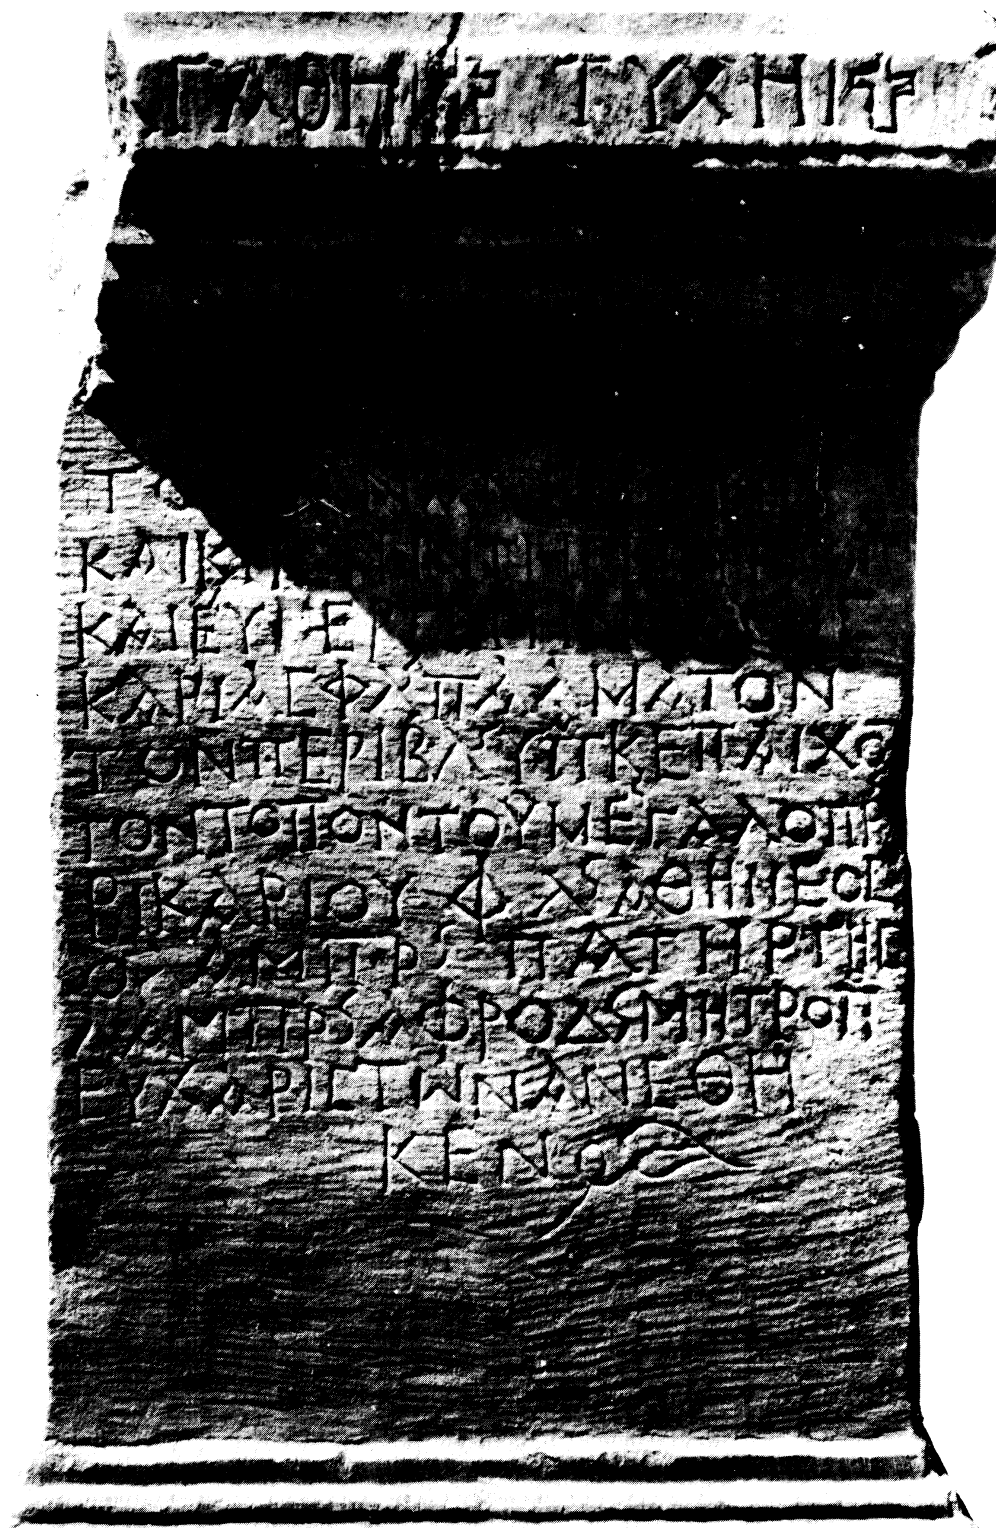 ΓΑΘΗ ΤΥΧΗΙ
ΤΟ
ΚΑΙΚ
ΚΑΙΕΥΕΡ
ΚΑΡΙΑϹΦΛΠΑΛΜΑΤΟΝ
ΤΟΝΠΕΡΙΒΛϚΥΠΤΚΕΠΑΙΧΟ
ΤΟΝΤΟΠΟΝΤΟΥΜΕΓΑΛΟΠΡ
ΒΙΚΑΡΙΟΥΦΛϚΑΘΗΝΕΟϹ
ΟΛΑΜΠΡϚΠΑΤΗΡΤΗϹ
ΛΑΜΠΡϚΑΦΡΟΔϚΜΗΤΡΟΠ
ΕΥΧΑΡΙϹΤωΝΑΝΕΘΗ
ΚΕΝ